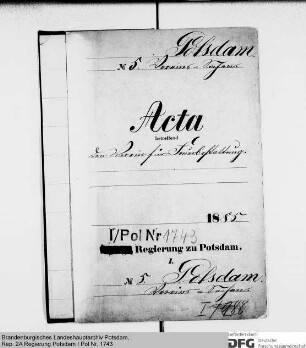 Potsdam.
№ 5. Vereins-Sachen
Acta
betreffend
den Verein für Feuerbestattung.
1885
I/Pol Nr 1743
Regierung zu Potsdam.
I.
Potsdam.
№ 5 Vereins-Sachen
Brandenburgisches Landeshauptarchiv Potsdam,
Rep. 2A Regierung Potsdam I Pol Nr. 1743
gefördert durch
DFG
Deutsche
Forschungsgemeinschaft